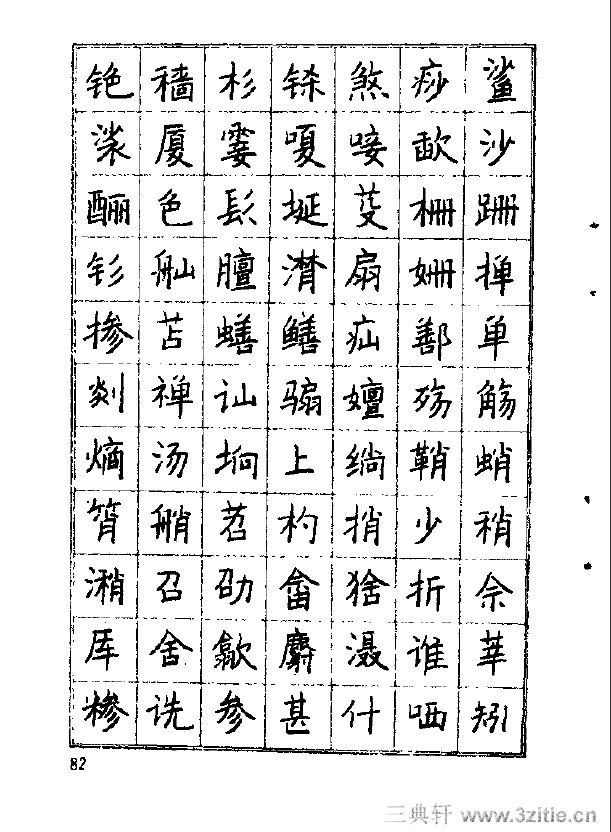 铯 穑 杉 铩 煞 痧 鲨
裟 厦 霎 嗄 唼 歃 沙
酾 色 髟 埏 芟 栅 跚
钐 舢 膻 潸 扇 姗 掸
掺 苫 蟮 鳝 疝 鄯 单
剡 禅 讪 骟 嬗 殇 觞
熵 汤 垧 上 绱 鞘 蛸
筲 艄 苕 杓 捎 少 稍
潲 召 劭 畲 猞 折 佘
厍 舍 歙 麝 滠 谁 莘
糁 诜 参 甚 什 哂 矧
82
三典轩 www.3zitie.cn